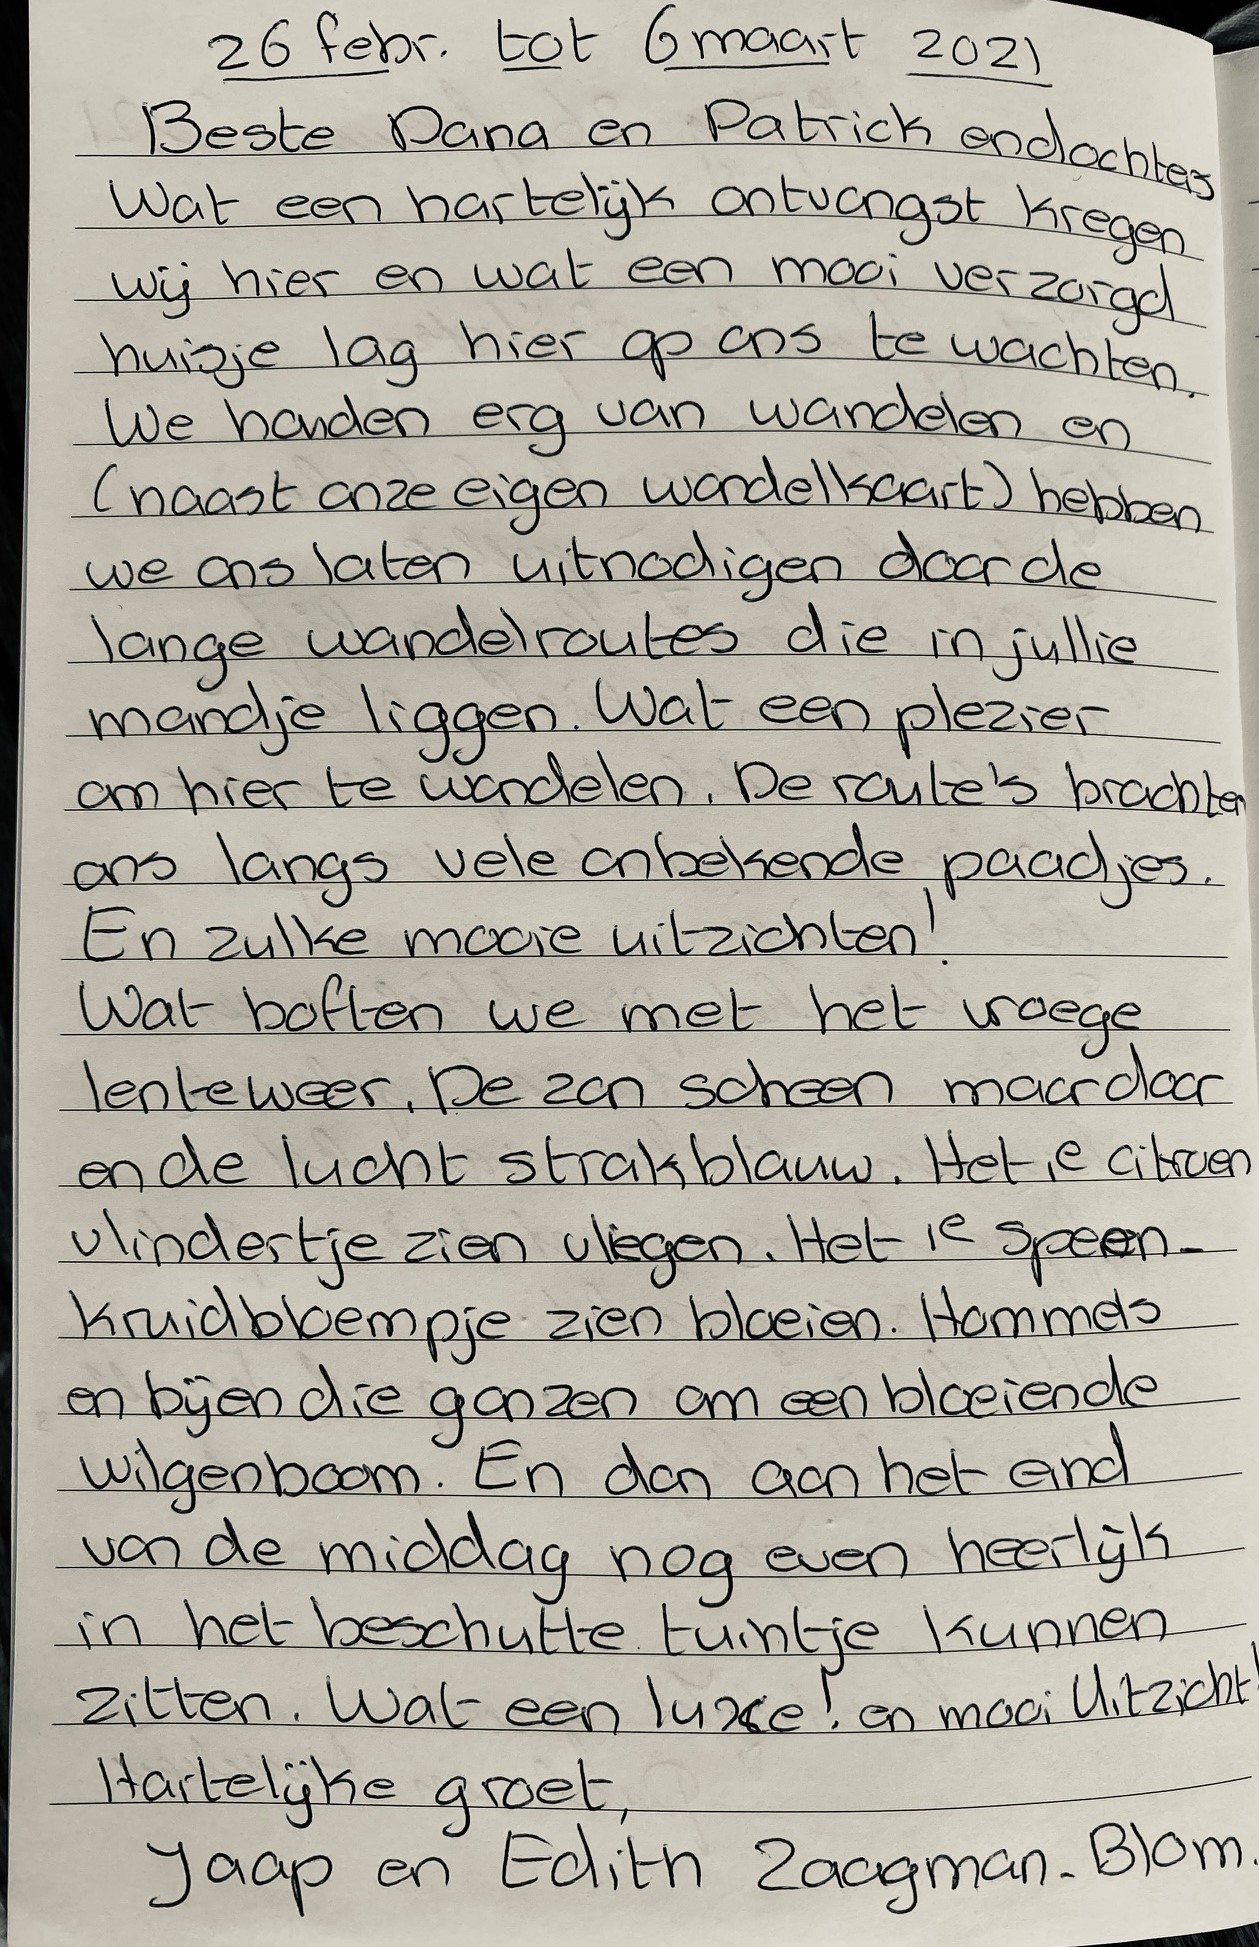 26 febr. tot 6 maart 2021
Beste Dana en Patrick en dochters
Wat een hartelijk ontvangst kregen
wij hier en wat een mooi verzorgd
huisje lag hier op ons te wachten.
We houden erg van wandelen en
(naast onze eigen wandelkaart) hebben
we ons laten uitnodigen door de
lange wandelroutes die in jullie
mandje liggen. Wat een plezier
om hier te wandelen. De route's brachten
ons langs vele onbekende paadjes.
En zulke mooie uitzichten!
Wat boften we met het vroege
lenteweer. De zon scheen maar door
en de lucht strakblauw. Het 1e citroen
vlindertje zien vliegen. Het 1e speen-
kruidbloempje zien bloeien. Hommels
en bijen die gonzen om een bloeiende
wilgenboom. En dan aan het eind
van de middag nog even heerlijk
in het beschutte tuintje kunnen
zitten. Wat een luxe! en mooi Uitzicht!
Hartelijke groet,
Jaap en Edith Zaagman-Blom.